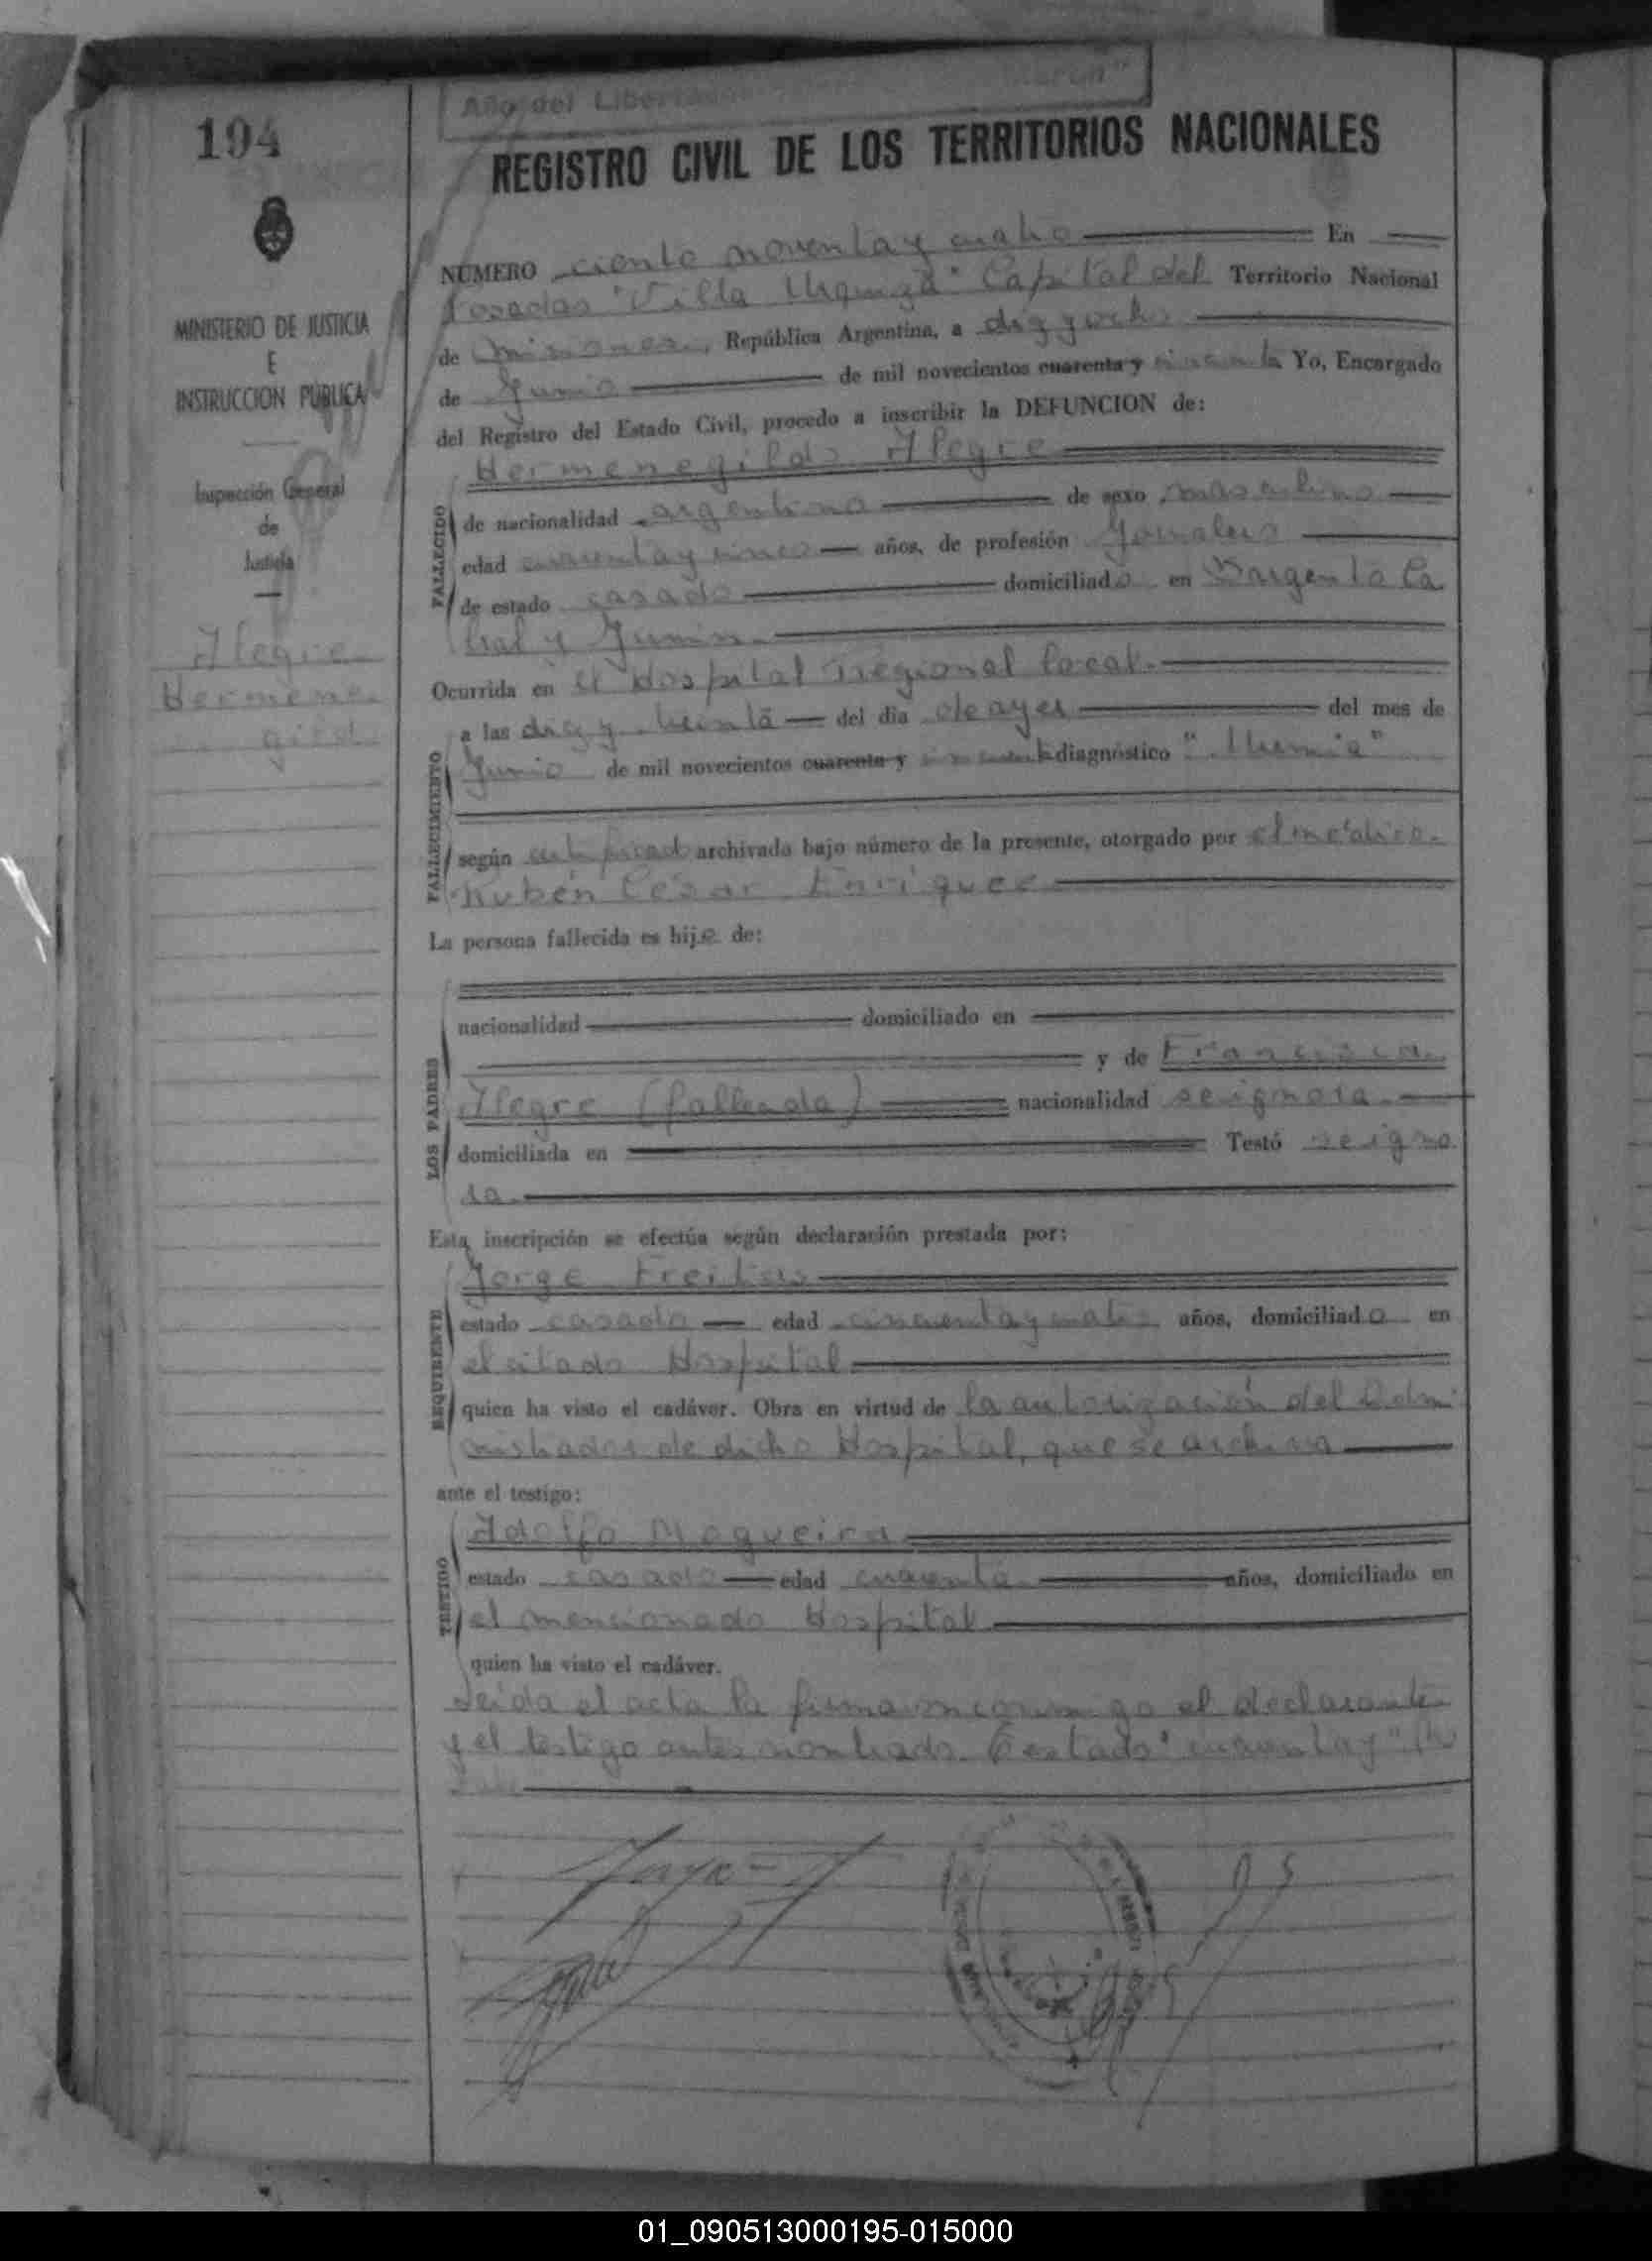 Año del Libertador
194
REGISTRO CIVIL DE LOS TERRITORIOS NACIONALES
MINISTERIO DE JUSTICIA
E
INSTRUCCION PUBLICA
Inspección General
de
Justicia
Alegre
Hermene
gildo
NÚMERO ciento noventa y cuatro En
Posadas "Villa Urquiza" Capital del Territorio Nacional
de Misiones, República Argentina, a diez y ocho
de Junio de mil novecientos cuarenta y cincuenta Yo, Encargado
del Registro del Estado Civil, procedo a inscribir la DEFUNCION de:
FALLECIDO
Hermenegildo Alegre
de nacionalidad argentino de sexo masculino
edad cuarenta y cinco años, de profesión Jornalero
de estado casado domiciliado en Sargento Ca
bral y Junín
FALLECIMIENTO
Ocurrida en el Hospital regional local.
a las diez y treinta del día de ayer del mes de
Junio de mil novecientos cuarenta y cincuenta diagnóstico "Uremia"
según certificado archivado bajo número de la presente, otorgado por el médico
Rubén César Enriquez
La persona fallecida es hijo de:
LOS PADRES
nacionalidad domiciliado en
y de Francisca
Alegre (fallecida) nacionalidad se ignora
domiciliada en Testó se igno
ra
Esta inscripción se efectúa según declaración prestada por:
REQUIRENTE
Jorge Freitas
estado casado edad cincuenta y cuatro años, domiciliado en
el citado Hospital
quien ha visto el cadáver. Obra en virtud de la autorización del Admi
nistrador de dicho Hospital, que se archiva
ante el testigo:
TESTIGO
Adolfo Nogueira
estado casado edad cuarenta años, domiciliado en
el mencionado Hospital
quien ha visto el cadáver.
Leída el acta la firman conmigo el declarante
y el testigo antes nombrado. Testado "cuarenta y"
Vale
01_090513000195-015000